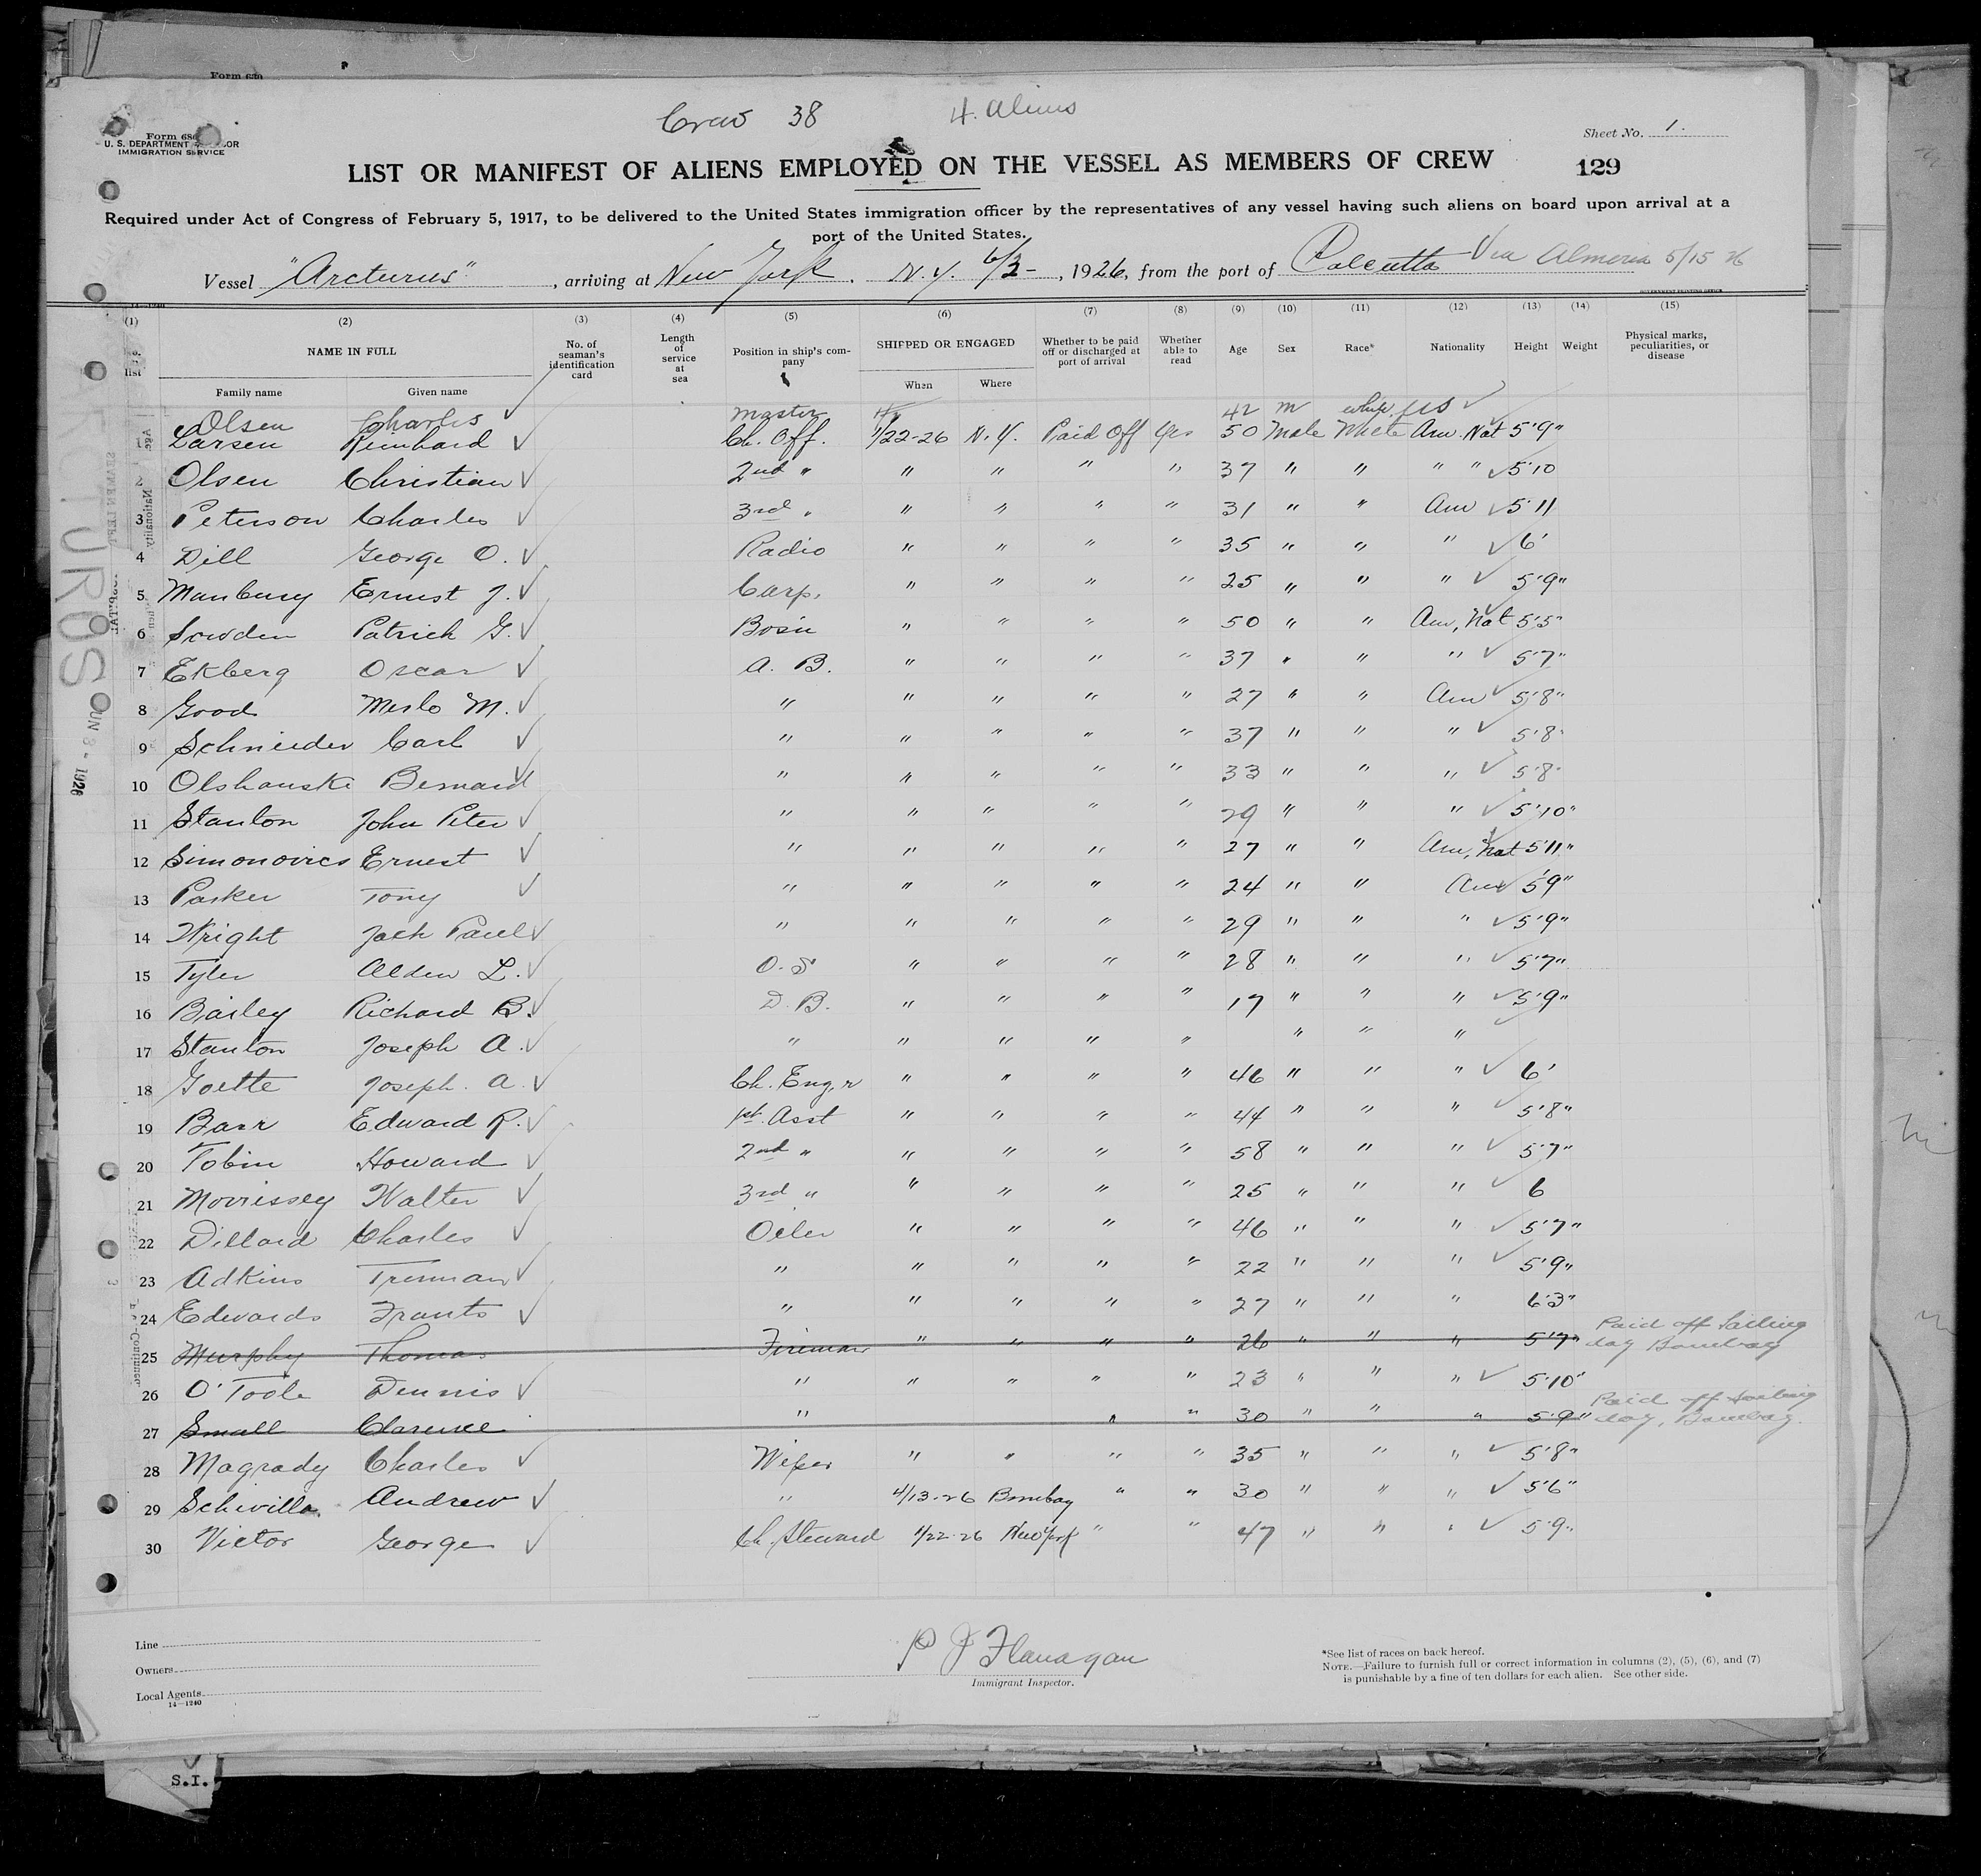 Form 630
Crew 38 4. Aliens
Form 680
U. S. DEPARTMENT OF LABOR
IMMIGRATION SERVICE
Sheet No. 1.
LIST OR MANIFEST OF ALIENS EMPLOYED ON THE VESSEL AS MEMBERS OF CREW 129
Required under Act of Congress of February 5, 1917, to be delivered to the United States immigration officer by the representatives of any vessel having such aliens on board upon arrival at a
port of the United States.
Vessel "Arcturus", arriving at New York. N.Y. 6/3-, 1926, from the port of Calcutta Via Almeria 5/15 26
GOVERNMENT PRINTING OFFICE
14-1240
(1) (2) (3) (4) (5) (6) (7) (8) (9) (10) (11) (12) (13) (14) (15)
No. list NAME IN FULL No. of seaman's identification card Length of service at sea Position in ship's company SHIPPED OR ENGAGED Whether to be paid off or discharged at port of arrival Whether able to read Age Sex Race* Nationality Height Weight Physical marks, peculiarities, or disease
Family name Given name When Where
Olsen Charles ✓ Master 42 m white US ✓
1 Larsen Reinhard ✓ Ch. Off. 1/22-26 N.Y. Paid Off Yes 50 Male White Am. Nat 5'9"
2 Olsen Christian ✓ 2nd " " " " " 37 " " " " ✓ 5'10
3 Peterson Charles ✓ 3rd " " " " " 31 " " Am ✓ 5'11
4 Dill George O. ✓ Radio " " " " 35 " " " ✓ 6'
5 Manbury Ernest J. ✓ Carp. " " " " 25 " " " ✓ 5'9"
6 Sowden Patrick G. ✓ Bosn " " " " 50 " " Am, Nat 5'5"
7 Ekberg Oscar ✓ A. B. " " " " 37 " " " ✓ 5'7"
8 Good Merlo M. ✓ " " " " " 27 " " Am ✓ 5'8"
9 Schnieder Carl ✓ " " " " " 37 " " " ✓ 5'8"
10 Olshanske Bernard ✓ " " " " " 33 " " " ✓ 5'8"
11 Stanton John Peter ✓ " " " " " 29 " " " ✓ 5'10"
12 Simonovics Ernest ✓ " " " " " 27 " " Am, Nat 5'11"
13 Parker Tony ✓ " " " " " 24 " " Am ✓ 5'9"
14 Wright Jack Paul ✓ " " " " " 29 " " " ✓ 5'9"
15 Tyler Alden L. ✓ O. S " " " " 28 " " " ✓ 5'7"
16 Bailey Richard B. ✓ D. B. " " " " 17 " " " ✓ 5'9"
17 Stanton Joseph A. ✓ " " " " " " " " ✓
18 Goette Joseph. A. ✓ Ch. Eng.r " " " " 46 " " " ✓ 6'
19 Barr Edward R. ✓ 1st. Asst " " " " 44 " " " ✓ 5'8"
20 Tobin Howard ✓ 2nd " " " " " 58 " " " ✓ 5'7"
21 Morrissey Walter ✓ 3rd " " " " " 25 " " " ✓ 6
22 Dillard Charles ✓ Oiler " " " " 46 " " " ✓ 5'7"
23 Adkins Trenman ✓ " " " " " 22 " " " ✓ 5'9"
24 Edwards Frants ✓ " " " " " 27 " " " 6'3"
25 Murphy Thomas Fireman " " " " 26 " " " 5'7" Paid off Sailing day Bombay
26 O'Toole Dennis ✓ " " " " " 23 " " " ✓ 5'10"
27 Small Clarence " " " 30 " " " 5'9" Paid off Sailing day, Bombay.
28 Magrady Charles ✓ Wiper " " " " 35 " " " ✓ 5'8"
29 Schivilla Andrew ✓ " 4/13-26 Bombay " " 30 " " " ✓ 5'6"
30 Victor George ✓ Ch. Steward 1/22-26 New York " " 47 " " " ✓ 5'9"
Line
Owners
Local Agents
14-1240
P J Flanagan
Immigrant Inspector.
*See list of races on back hereof.
NOTE.—Failure to furnish full or correct information in columns (2), (5), (6), and (7)
is punishable by a fine of ten dollars for each alien. See other side.
JUN 3 - 1926
S.I.